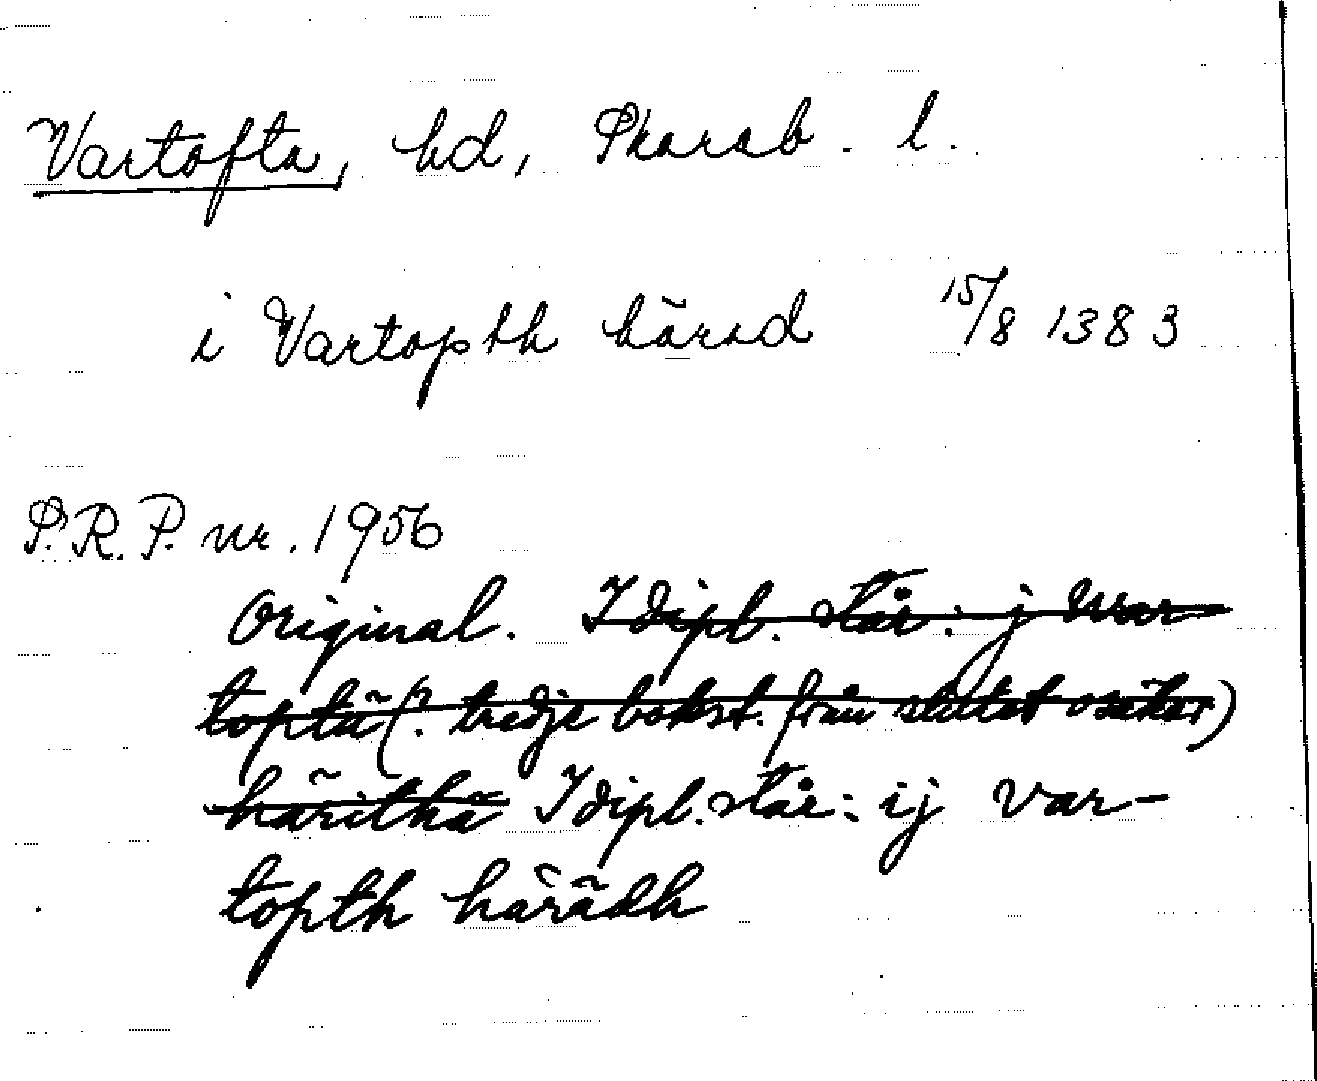 Vartofta, hd, Skarab. l.
i Vartopth härad 15/8 1383
P.R.P. nr. 1956
Original. I dipl. står: j War
toptä (? tredje bokst. från slutet osäker)
härithä I dipl. står: ij Var-
topth härädh